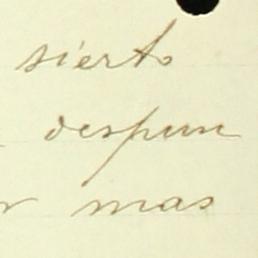 sierto
despues
r mas